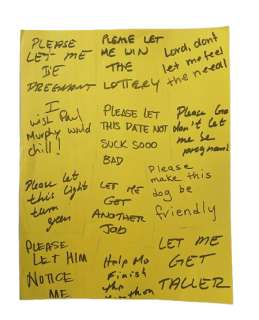 PLEASE
LET ME
BE
PREGNANT
PLEASE LET
ME WIN
THE
LOTTERY
Lord, dont
let me feel
the need!
I
wish Paul
Murphy would
chill!
PLEASE LET
THIS DATE NOT
SUCK SOOO
BAD
Please God
don't let
me be
pregnant!
Please let
this light
turn
green
LET ME
GET
ANOTHER
JOB
Please
make this
dog be
friendly
PLEASE
LET HIM
NOTICE
ME
Help Me
Finish
this
marathon
LET ME
GET
TALLER